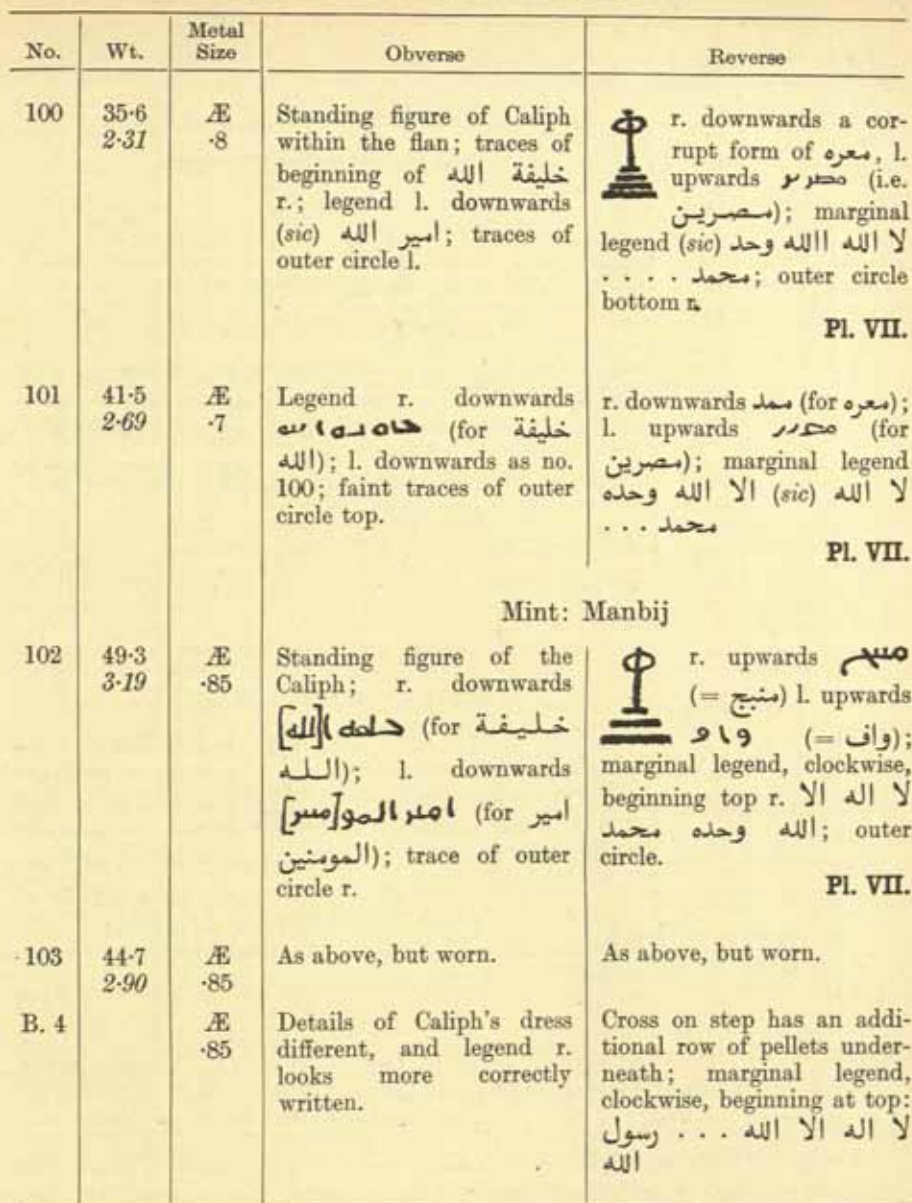 No. Wt. Metal Size Obverse Reverse
100 35·6 Æ Standing figure of Caliph
2·31 ·8 within the flan; traces of
beginning of خليفة الله
r.; legend l. downwards
(sic) امير الله; traces of
outer circle l.
r. downwards a cor-
rupt form of معره, l.
upwards (i.e.
مصرين); marginal
legend (sic) لا الله االله وحد
محمد . . . .; outer circle
bottom r.
Pl. VII.
101 41·5 Æ Legend r. downwards
2·69 ·7 (for خليفة
الله); l. downwards as no.
100; faint traces of outer
circle top.
r. downwards ممد (for معره);
l. upwards (for
مصرين); marginal legend
لا الله (sic) الا الله وحده
محمد . . .
Pl. VII.
Mint: Manbij
102 49·3 Æ Standing figure of the
3·19 ·85 Caliph; r. downwards
(for خليفة
الله); l. downwards
(for امير
المومنين); trace of outer
circle r.
r. upwards
(= منبج) l. upwards
(= واف);
marginal legend, clockwise,
beginning top r. لا اله الا
الله وحده محمد; outer
circle.
Pl. VII.
103 44·7 Æ As above, but worn. As above, but worn.
2·90 ·85
B. 4 Æ Details of Caliph's dress
·85 different, and legend r.
looks more correctly
written.
Cross on step has an addi-
tional row of pellets under-
neath; marginal legend,
clockwise, beginning at top:
لا اله الا الله . . . رسول
الله